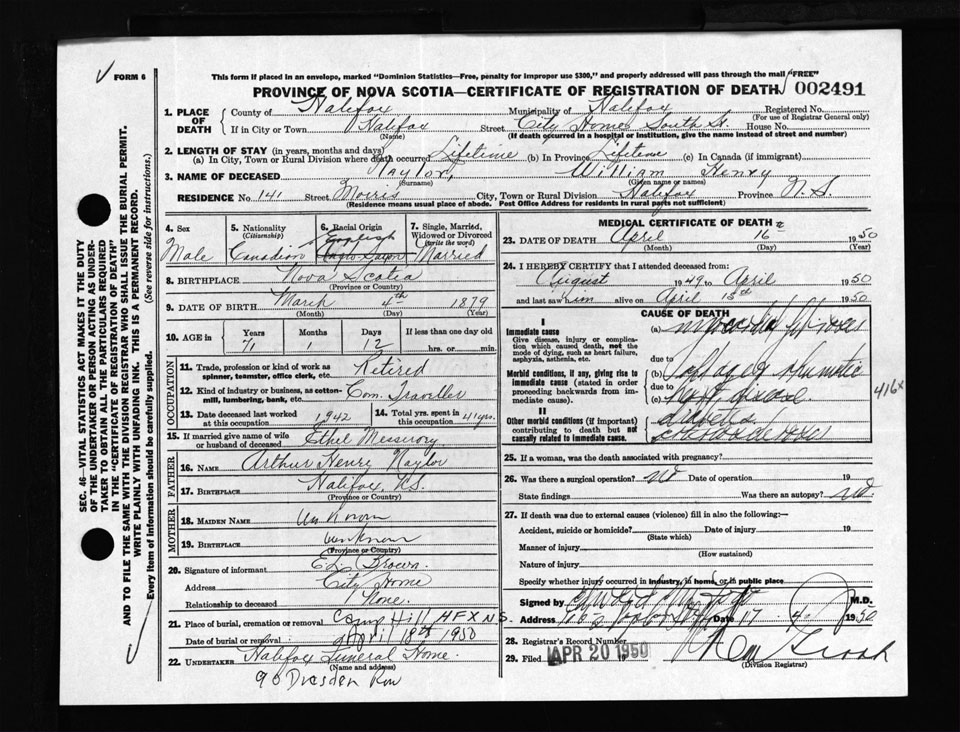 FORM 6
This form if placed in an envelope, marked "Dominion Statistics—Free, penalty for improper use $300," and properly addressed will pass through the mail "FREE"
PROVINCE OF NOVA SCOTIA—CERTIFICATE OF REGISTRATION OF DEATH 002491
1. PLACE OF DEATH
County of Halifax Municipality of Halifax Registered No.
(For use of Registrar General only)
If in City or Town Halifax Street City Home South St. House No.
(Name) (If death occurred in a hospital or institution, give the name instead of street and number)
2. LENGTH OF STAY (in years, months and days)
(a) In City, Town or Rural Division where death occurred Lifetime (b) In Province Lifetime (c) In Canada (if immigrant)
3. NAME OF DECEASED Naylor, William Henry
(Surname) (Given name or names)
RESIDENCE No. 141 Street Morris City, Town or Rural Division Halifax Province N.S.
(Residence means usual place of abode. Post Office Address for residents in rural parts not sufficient)
4. Sex
Male
5. Nationality
(Citizenship)
Canadian
6. Racial Origin
English
Anglo-Saxon
7. Single, Married, Widowed or Divorced
(write the word)
Married
8. BIRTHPLACE Nova Scotia
(Province or Country)
9. DATE OF BIRTH March 4th 1879
(Month) (Day) (Year)
10. AGE in Years Months Days If less than one day old
71 1 12 hrs. or min.
OCCUPATION
11. Trade, profession or kind of work as spinner, teamster, office clerk, etc. Retired
12. Kind of industry or business, as cotton-mill, lumbering, bank, etc. Com. Traveller
13. Date deceased last worked at this occupation 1942
14. Total yrs. spent in this occupation 41 yrs.
15. If married give name of wife or husband of deceased Ethel
FATHER
16. NAME Arthur Henry Naylor
17. BIRTHPLACE Halifax, N.S.
(Province or Country)
MOTHER
18. MAIDEN NAME Unknown
19. BIRTHPLACE Unknown
(Province or Country)
20. Signature of informant Brown
Address City Home
Relationship to deceased None.
21. Place of burial, cremation or removal Camp Hill HFX N.S.
Date of burial or removal April 18th 1950
22. UNDERTAKER Halifax Funeral Home.
(Name and address)
90 Dresden Row
MEDICAL CERTIFICATE OF DEATH
23. DATE OF DEATH April 16 1950
(Month) (Day) (Year)
24. I HEREBY CERTIFY that I attended deceased from:
August 1949 to April 1950
and last saw him alive on April 15th 1950
CAUSE OF DEATH
I
Immediate cause
Give disease, injury or complication which caused death, not the mode of dying, such as heart failure, asphyxia, asthenia, etc.
(a)
due to
Morbid conditions, if any, giving rise to immediate cause (stated in order proceeding backwards from immediate cause).
(b) rheumatic
due to
(c) heart disease
II
Other morbid conditions (if important) contributing to death but not causally related to immediate cause.
diabetes
416X
25. If a woman, was the death associated with pregnancy?
26. Was there a surgical operation? no Date of operation 19
State findings Was there an autopsy? no.
27. If death was due to external causes (violence) fill in also the following:—
Accident, suicide or homicide? Date of injury 19
(State which)
Manner of injury
(How sustained)
Nature of injury
Specify whether injury occurred in industry, in home, or in public place
Signed by M.D.
Address Date 17 1950
28. Registrar's Record Number
29. Filed APR 20 1950
(Division Registrar)
SEC. 46—VITAL STATISTICS ACT MAKES IT THE DUTY OF THE UNDERTAKER OR PERSON ACTING AS UNDERTAKER TO OBTAIN ALL THE PARTICULARS REQUIRED IN THE "CERTIFICATE OF REGISTRATION OF DEATH" AND TO FILE THE SAME WITH THE DIVISION REGISTRAR WHO SHALL ISSUE THE BURIAL PERMIT.
WRITE PLAINLY WITH UNFADING INK. THIS IS A PERMANENT RECORD.
Every item of information should be carefully supplied. (See reverse side for instructions.)